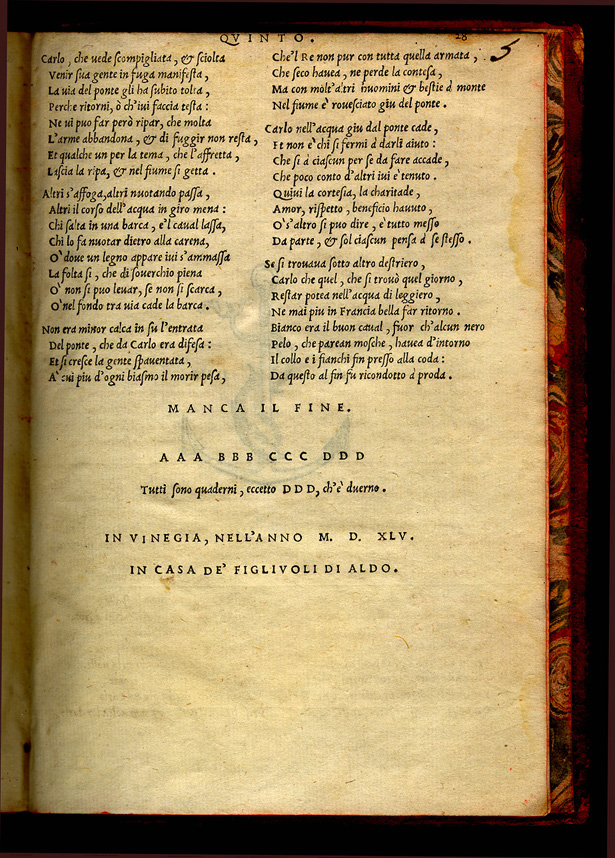 QVINTO. 28
5
Carlo, che uede scompigliata, & sciolta
Venir sua gente in fuga manifesta,
La uia del ponte gli ha subito tolta,
Perche ritorni, ò ch'iui faccia testa:
Ne ui puo far però ripar, che molta
L'arme abbandona, & di fuggir non resta,
Et qualche un per la tema, che l'affretta,
Lascia la ripa, & nel fiume si getta.
Altri s'affoga, altri nuotando passa,
Altri il corso dell'acqua in giro mena:
Chi salta in una barca, e'l caual lassa,
Chi lo fa nuotar dietro alla carena,
O' doue un legno appare iui s'ammassa
La folta sì, che di souerchio piena
O' non si puo leuar, se non si scarca,
O' nel fondo tra uia cade la barca.
Non era minor calca in su l'entrata
Del ponte, che da Carlo era difesa:
Et sì cresce la gente spauentata,
A' cui piu d'ogni biasmo il morir pesa,
Che'l Re non pur con tutta quella armata,
Che seco hauea, ne perde la contesa,
Ma con molt'altri huomini & bestie à monte
Nel fiume è rouesciato giu del ponte.
Carlo nell'acqua giu dal ponte cade,
Et non è chi si fermi à darli aiuto:
Che sì à ciascun per se da fare accade,
Che poco conto d'altri iui è tenuto.
Quiui la cortesia, la charitade,
Amor, rispetto, beneficio hauuto,
O' s'altro si puo dire, è tutto messo
Da parte, & sol ciascun pensa à se stesso.
Se si trouaua sotto altro destriero,
Carlo che quel, che si trouò quel giorno,
Restar potea nell'acqua di leggiero,
Ne mai piu in Francia bella far ritorno.
Bianco era il buon caual, fuor ch'alcun nero
Pelo, che parean mosche, hauea d'intorno
Il collo e i fianchi fin presso alla coda:
Da questo al fin fu ricondotto à proda.
MANCA IL FINE.
AAA BBB CCC DDD
Tutti sono quaderni, eccetto DDD, ch'è duerno.
IN VINEGIA, NELL'ANNO M. D. XLV.
IN CASA DE' FIGLIVOLI DI ALDO.